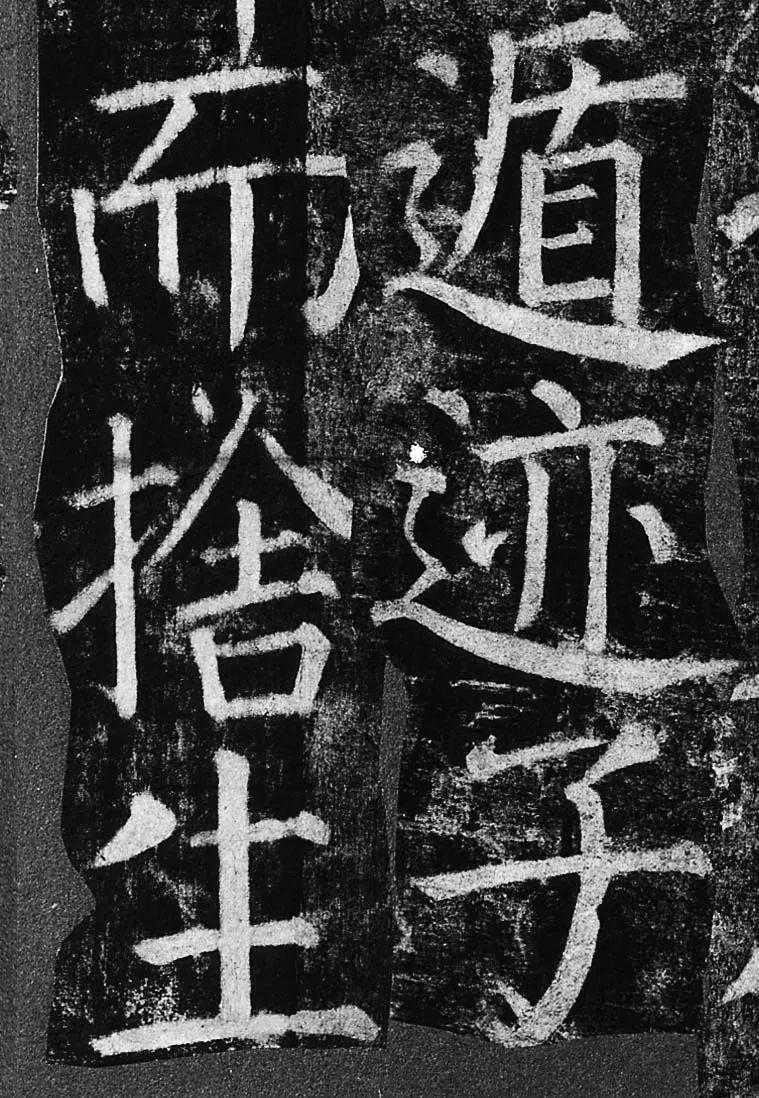 遁迹子
而捨生